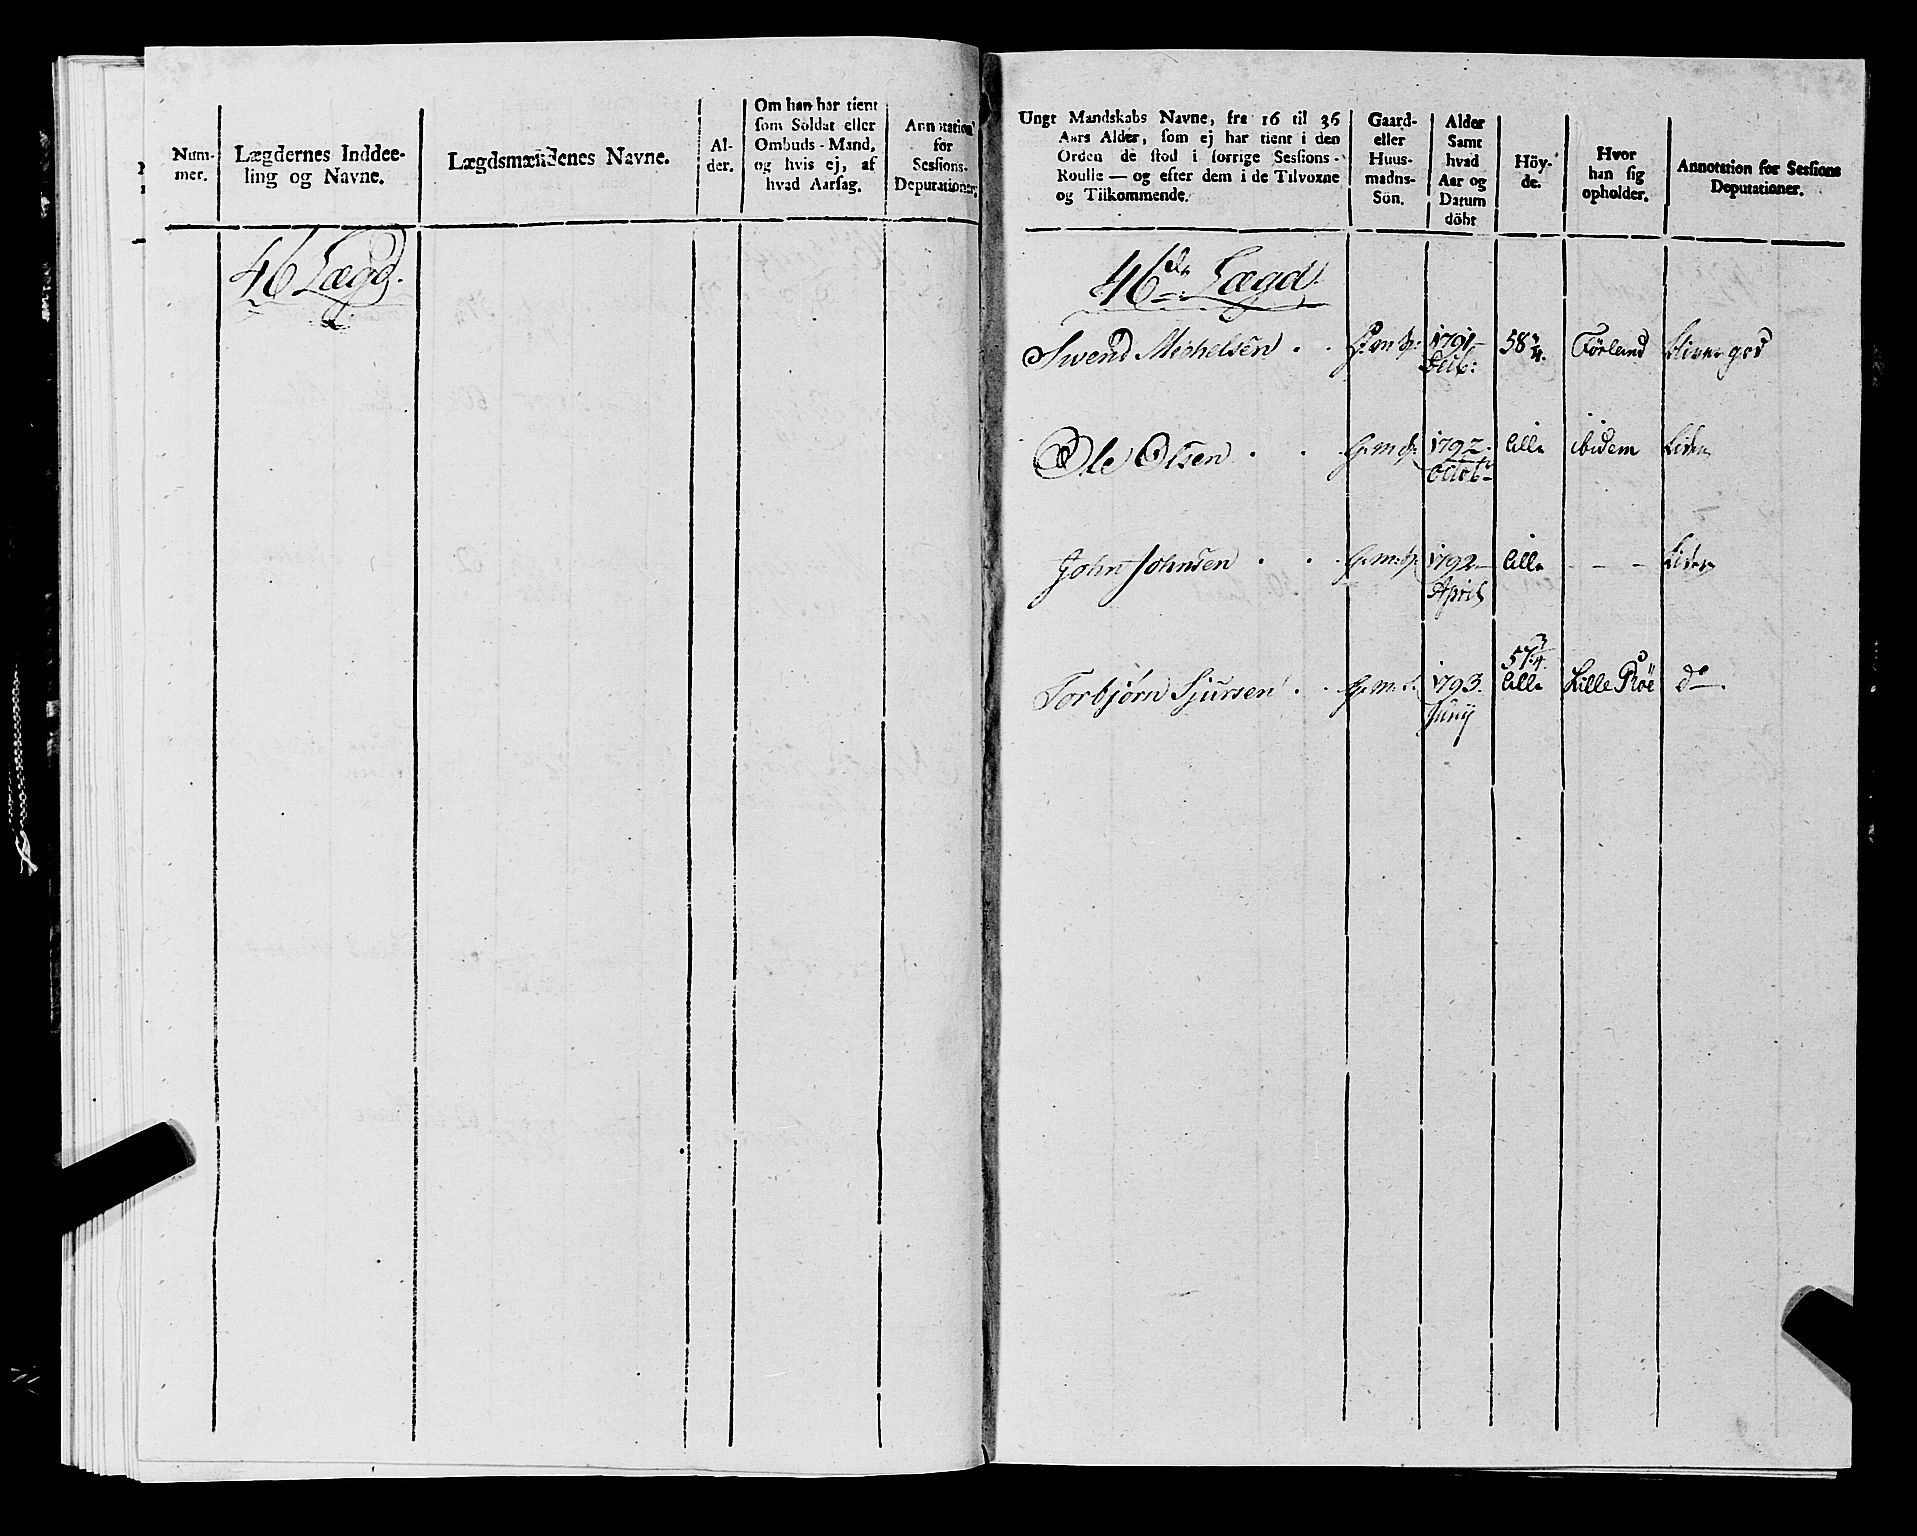 Num-
mer.
Lægdernes Inddee-
ling og Navne.
Lægdsmændenes Navne.
Al-
der.
Om han har tient
som Soldat eller
Ombuds-Mand,
og hvis ej, af
hvad Aarsag.
Annotation
for
Sessions-
Deputationer.
46 Lægd.
Ungt Mandskabs Navne, fra 16 til 36
Aars Alder, som ej har tient i den
Orden de stod i forrige Sessions-
Roulle — og efter dem i de Tilvoxne
og Tilkommende.
Gaard-
eller
Huus-
madns-
Sön.
Alder
Samt
hvad
Aar og
Datum
döbt
Höy-
de.
Hvor
han sig
opholder.
Annotation for Sessions
Deputationer.
46de Lægd
Svend Michelsen 1791 58 1/4. Förland
Ole Olsen G.m.s. 1792. lille ibidem liden
Octob
John Johnsen G.m.s. 1792 lille - - - liden
April
57 3/4.
Torbjørn Sjursen G.m.s. 1793. lille Lille Röe do
Juny